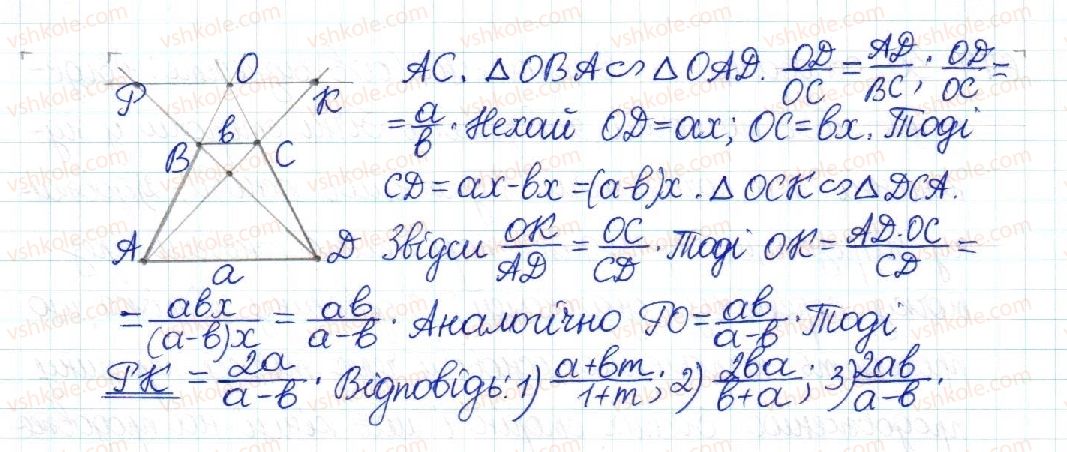 O
P
K
B
в
C
A
a
D
AC. △OBA∽△OAD. OD/OC = AD/BC; OD/OC =
= a/в. Нехай OD = ax; OC = вx. Тоді
CD = ax - вx = (a-в)x. △OCK∽△DCA.
Звідси OK/AD = OC/CD. Тоді OK = AD·OC/CD =
= aвx/(a-в)x = aв/a-в. Аналогічно PO = aв/a-в. Тоді
PK = 2a/a-в. Відповідь: 1) a+вm/1+m; 2) 2вa/в+a; 3) 2aв/a-в.